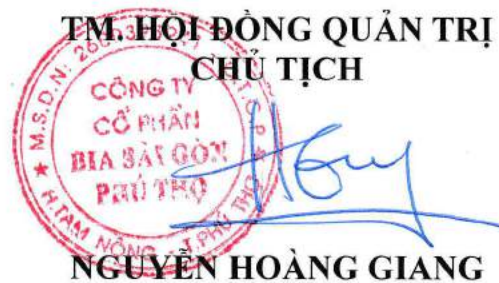 TM. HỘI ĐỒNG QUẢN TRỊ
CHỦ TỊCH
CÔNG TY
CỔ PHẦN
BIA SÀI GÒN
PHÚ THỌ
★ M.S.D.N:
C.T.C.P ★
H.TAM NÔNG - T.PHÚ THỌ
NGUYỄN HOÀNG GIANG